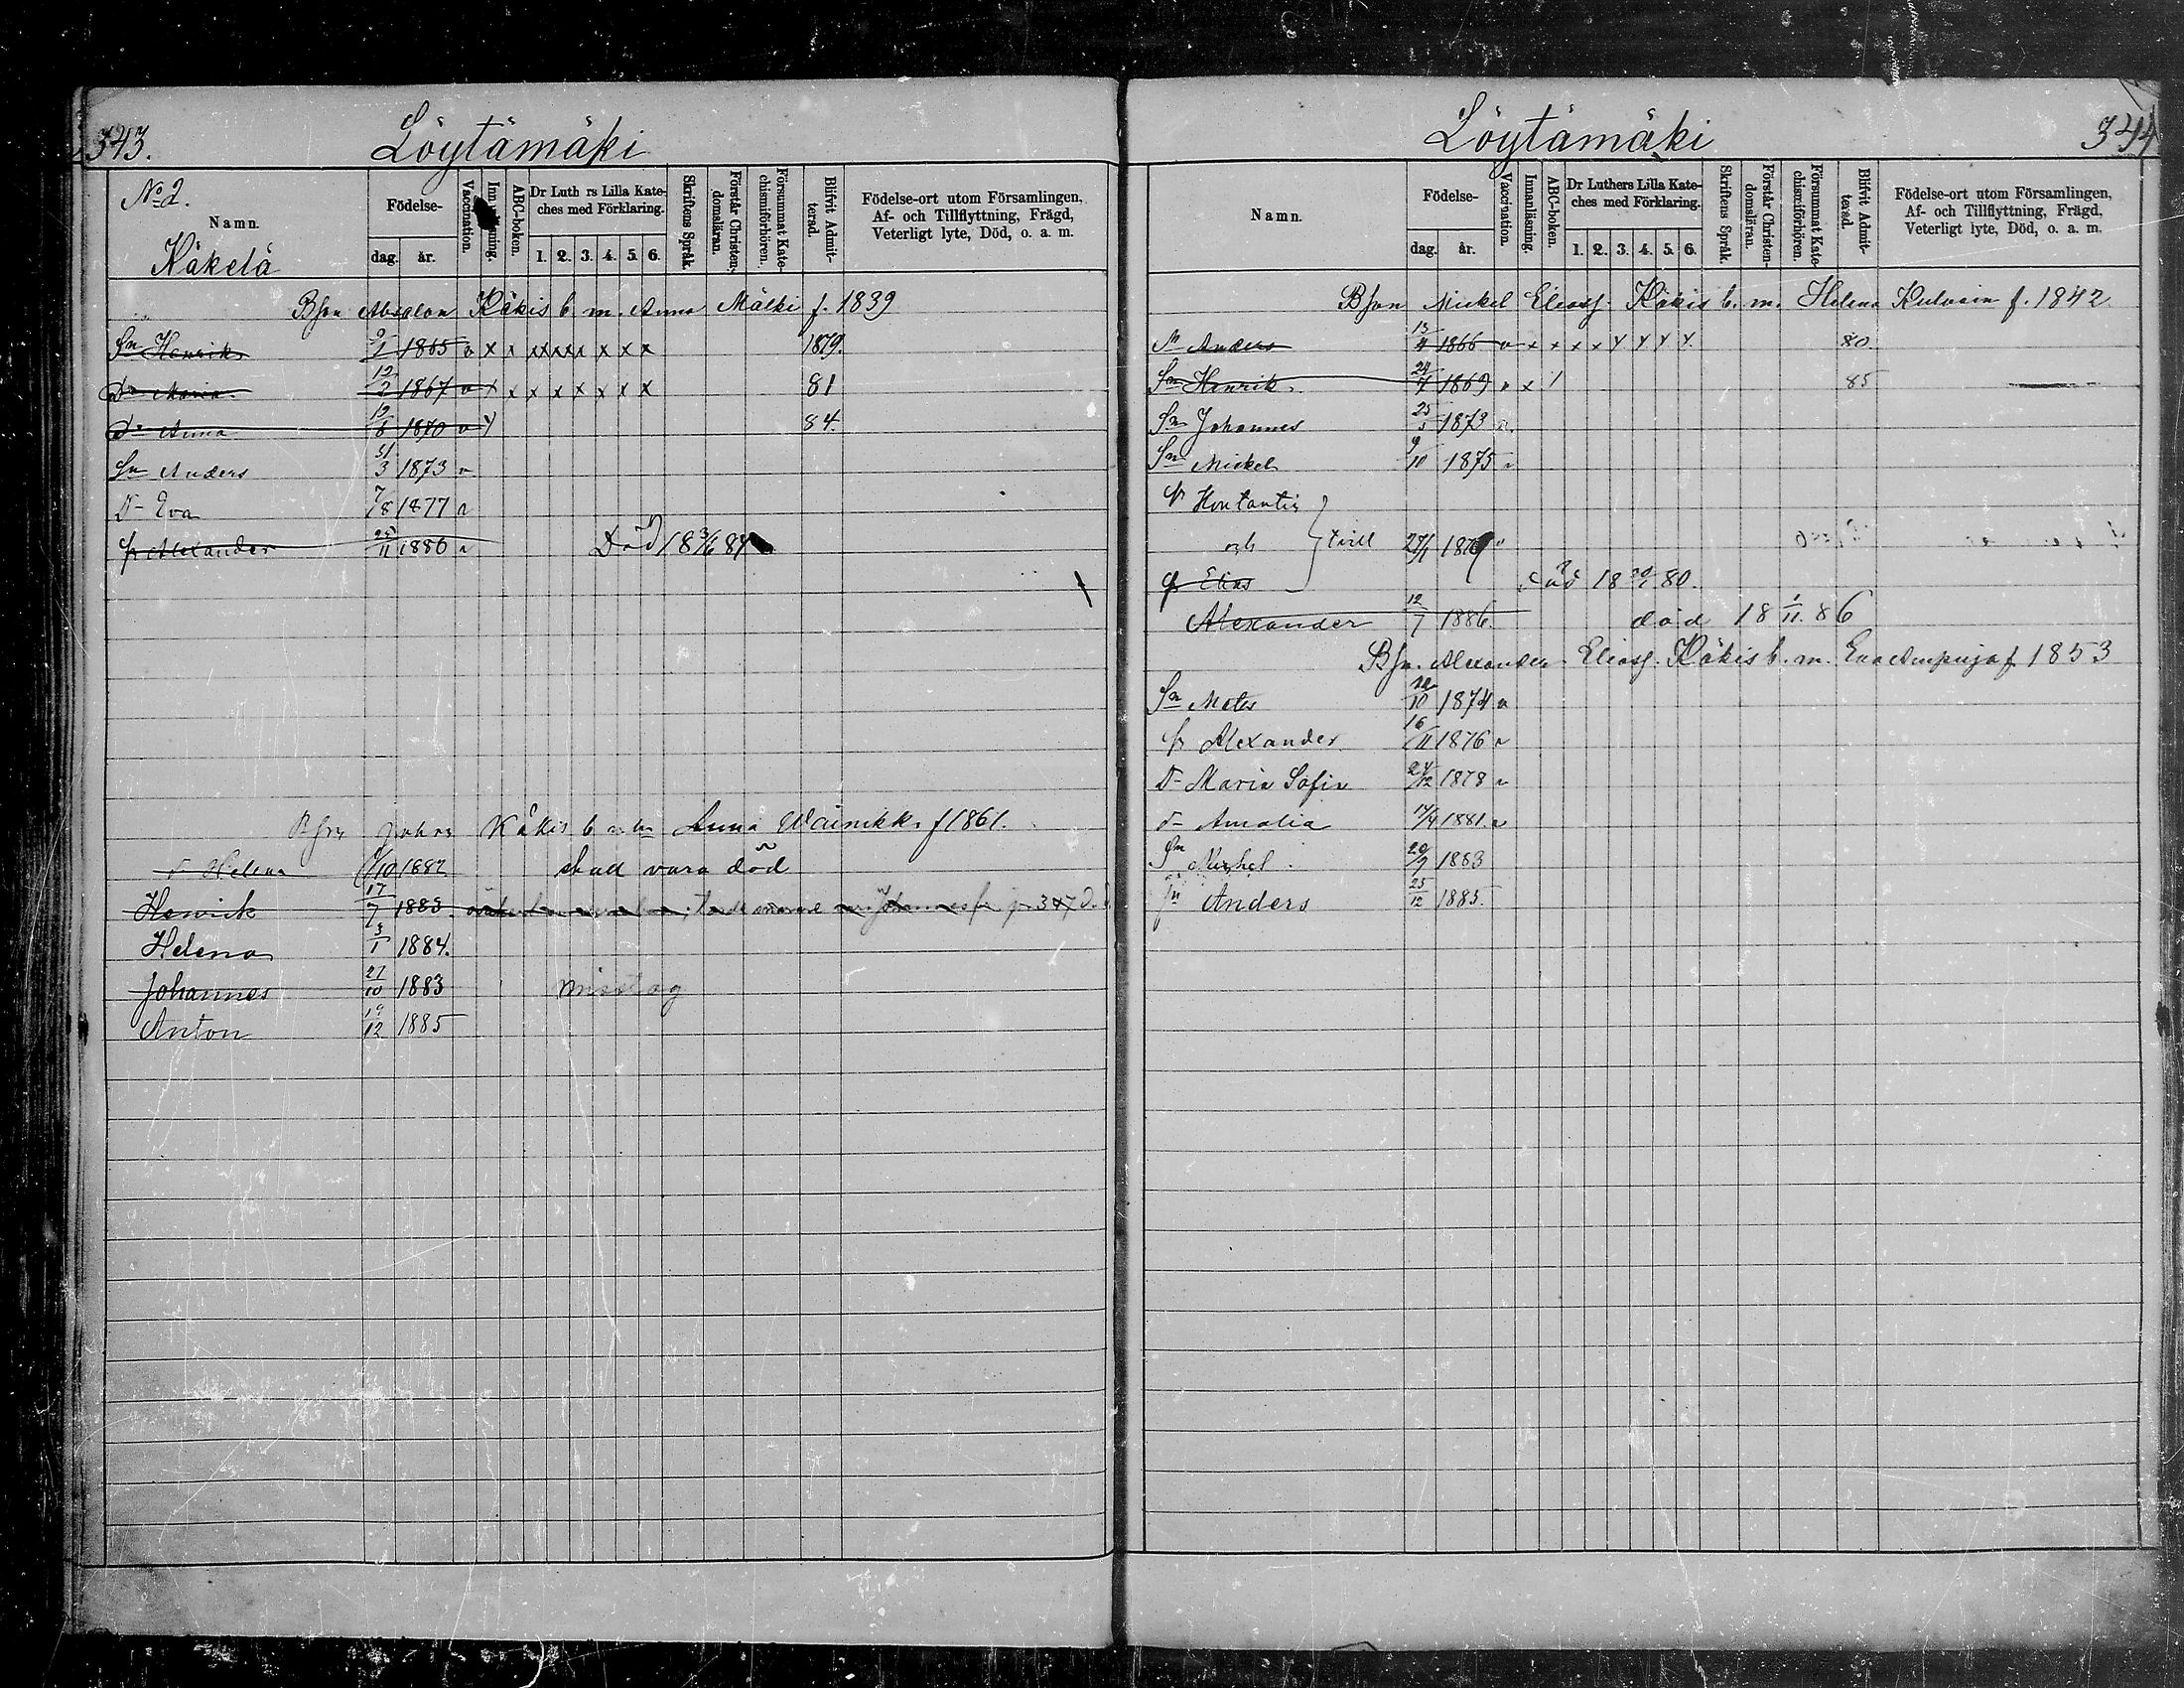 343.
Löytämäki
No 2.
Namn.
Födelse-
dag. år.
Vaccination.
ABC-boken.
Dr Luth rs Lilla Kate-
ches med Förklaring.
1. 2. 3. 4. 5. 6.
Skriftens Språk.
Förstår Christen-
domsläran.
Försummat Kate-
chismiförhören.
Blifvit Admit-
terad.
Födelse-ort utom Församlingen,
Af- och Tillflyttning, Frägd,
Veterligt lyte, Död, o. a. m.
Käkelä
Bson Absalon Käkis b. m. Anna Mälki f. 1839
Sn Henrik 9/1 1865 v x x x x x x x x x 1879.
Dr Maria 12/2 1867 v x x x x x x x x 81
Dr Anna 12/8 1870 v y 84.
Sn Anders 31/3 1873 v
Dr Eva 7/8 1877 v
Alexander 25/11 1886 v Död 18 3/6 87
Bsn Johan Käkis b m Anna Wainikka f 1861.
Dr Helena 1/10 1882 skall vara död
Henrik 17/7 1883. 347
Helena 3/1 1884.
Johannes 27/10 1883 misstag
Anton 19/12 1885
Löytämäki
344
Namn.
Födelse-
dag. år.
Vaccination.
Innanläsning.
ABC-boken.
Dr Luthers Lilla Kate-
ches med Förklaring.
1. 2. 3. 4. 5. 6.
Skriftens Språk.
Förstår Christen-
domsläran.
Försummat Kate-
chismiförhören.
Blifvit Admit-
terad.
Födelse-ort utom Församlingen,
Af- och Tillflyttning, Frägd,
Veterligt lyte, Död, o. a. m.
Bson Mickel Eliass. Käkis b. m. Helena Kulvain f. 1842
Sn Anders 13/4 1866 v x x x x y y y y 80.
Sn Henrik 24/7 1869 v x / 85
Sn Johannes 25/5 1873 v.
Sn Mickel 9/10 1875 v
Kontantin
och tvill 27/1 1879 v
Elias död 18 20/1 80.
Alexander 12/7 1886. död 18 1/11. 86
Bsn. Alexander Eliass. Käkis b. m. Eva Ampuja f. 1853
Sn Mats 12/10 1874 v
Alexander 16/11 1876 v
Dr Maria Sofia 24/12 1878 v
Dr Amalia 14/4 1881. v
Sn Michel 29/7 1883
Sn Anders 25/12 1885.